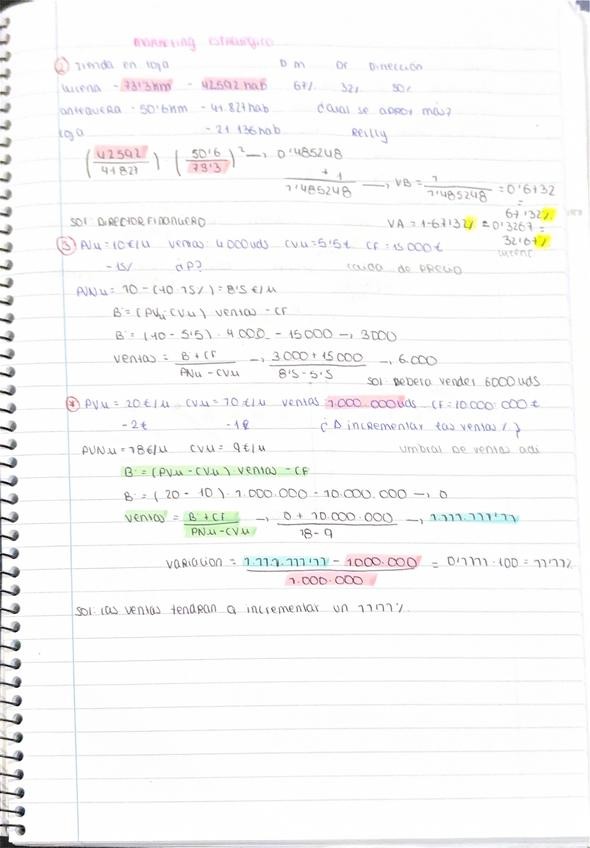 Marketing estratégico
② Tienda en loja DM DF Dirección
lucena - 73'3km - 42592 hab 67% 32% 50%
antequera - 50'6km - 41.827 hab cual se aprox más?
loja - 21.136 hab Reilly
(42592 / 41827) (50'6 / 73'3)² → 0'485248
+ 1
1'485248 → VB = 1 / 1'485248 = 0'6732
= 67'32%
SOL: DIRECTOR FINANCIERO VA = 1-67'32% = 0'3267 =
32'67%
lucena
③ PVu = 10€/u ventas 4000uds CVu = 5'5€ CF = 15000€
-15% ¿P? caída de precio
PVNu = 10 - (10·15%) = 8'5€/u
B = (PVu - CVu) ventas - CF
B = (10 - 5'5) · 4000 - 15000 → 3000
ventas = B + CF / PVNu - CVu → 3.000 + 15000 / 8'5 - 5'5 → 6.000
SOL: Debera vender 6000uds
PVu = 20€/u CVu = 10€/u ventas 1.000.000uds CF = 10.000.000€
-2€ -1€ ¿Δ incrementar las ventas %?
PVNu = 18€/u CVu = 9€/u umbral de ventas adi
B = (PVu - CVu) · ventas - CF
B = (20 - 10) · 1.000.000 - 10.000.000 → 0
ventas = B + CF / PNu - CVu → 0 + 10.000.000 / 18 - 9 → 1.111.111'11
variacion = 1.111.111'11 - 1000.000 / 1.000.000 = 0'1111 · 100 = 11'11%
SOL: las ventas tendran a incrementar un 11'11%.